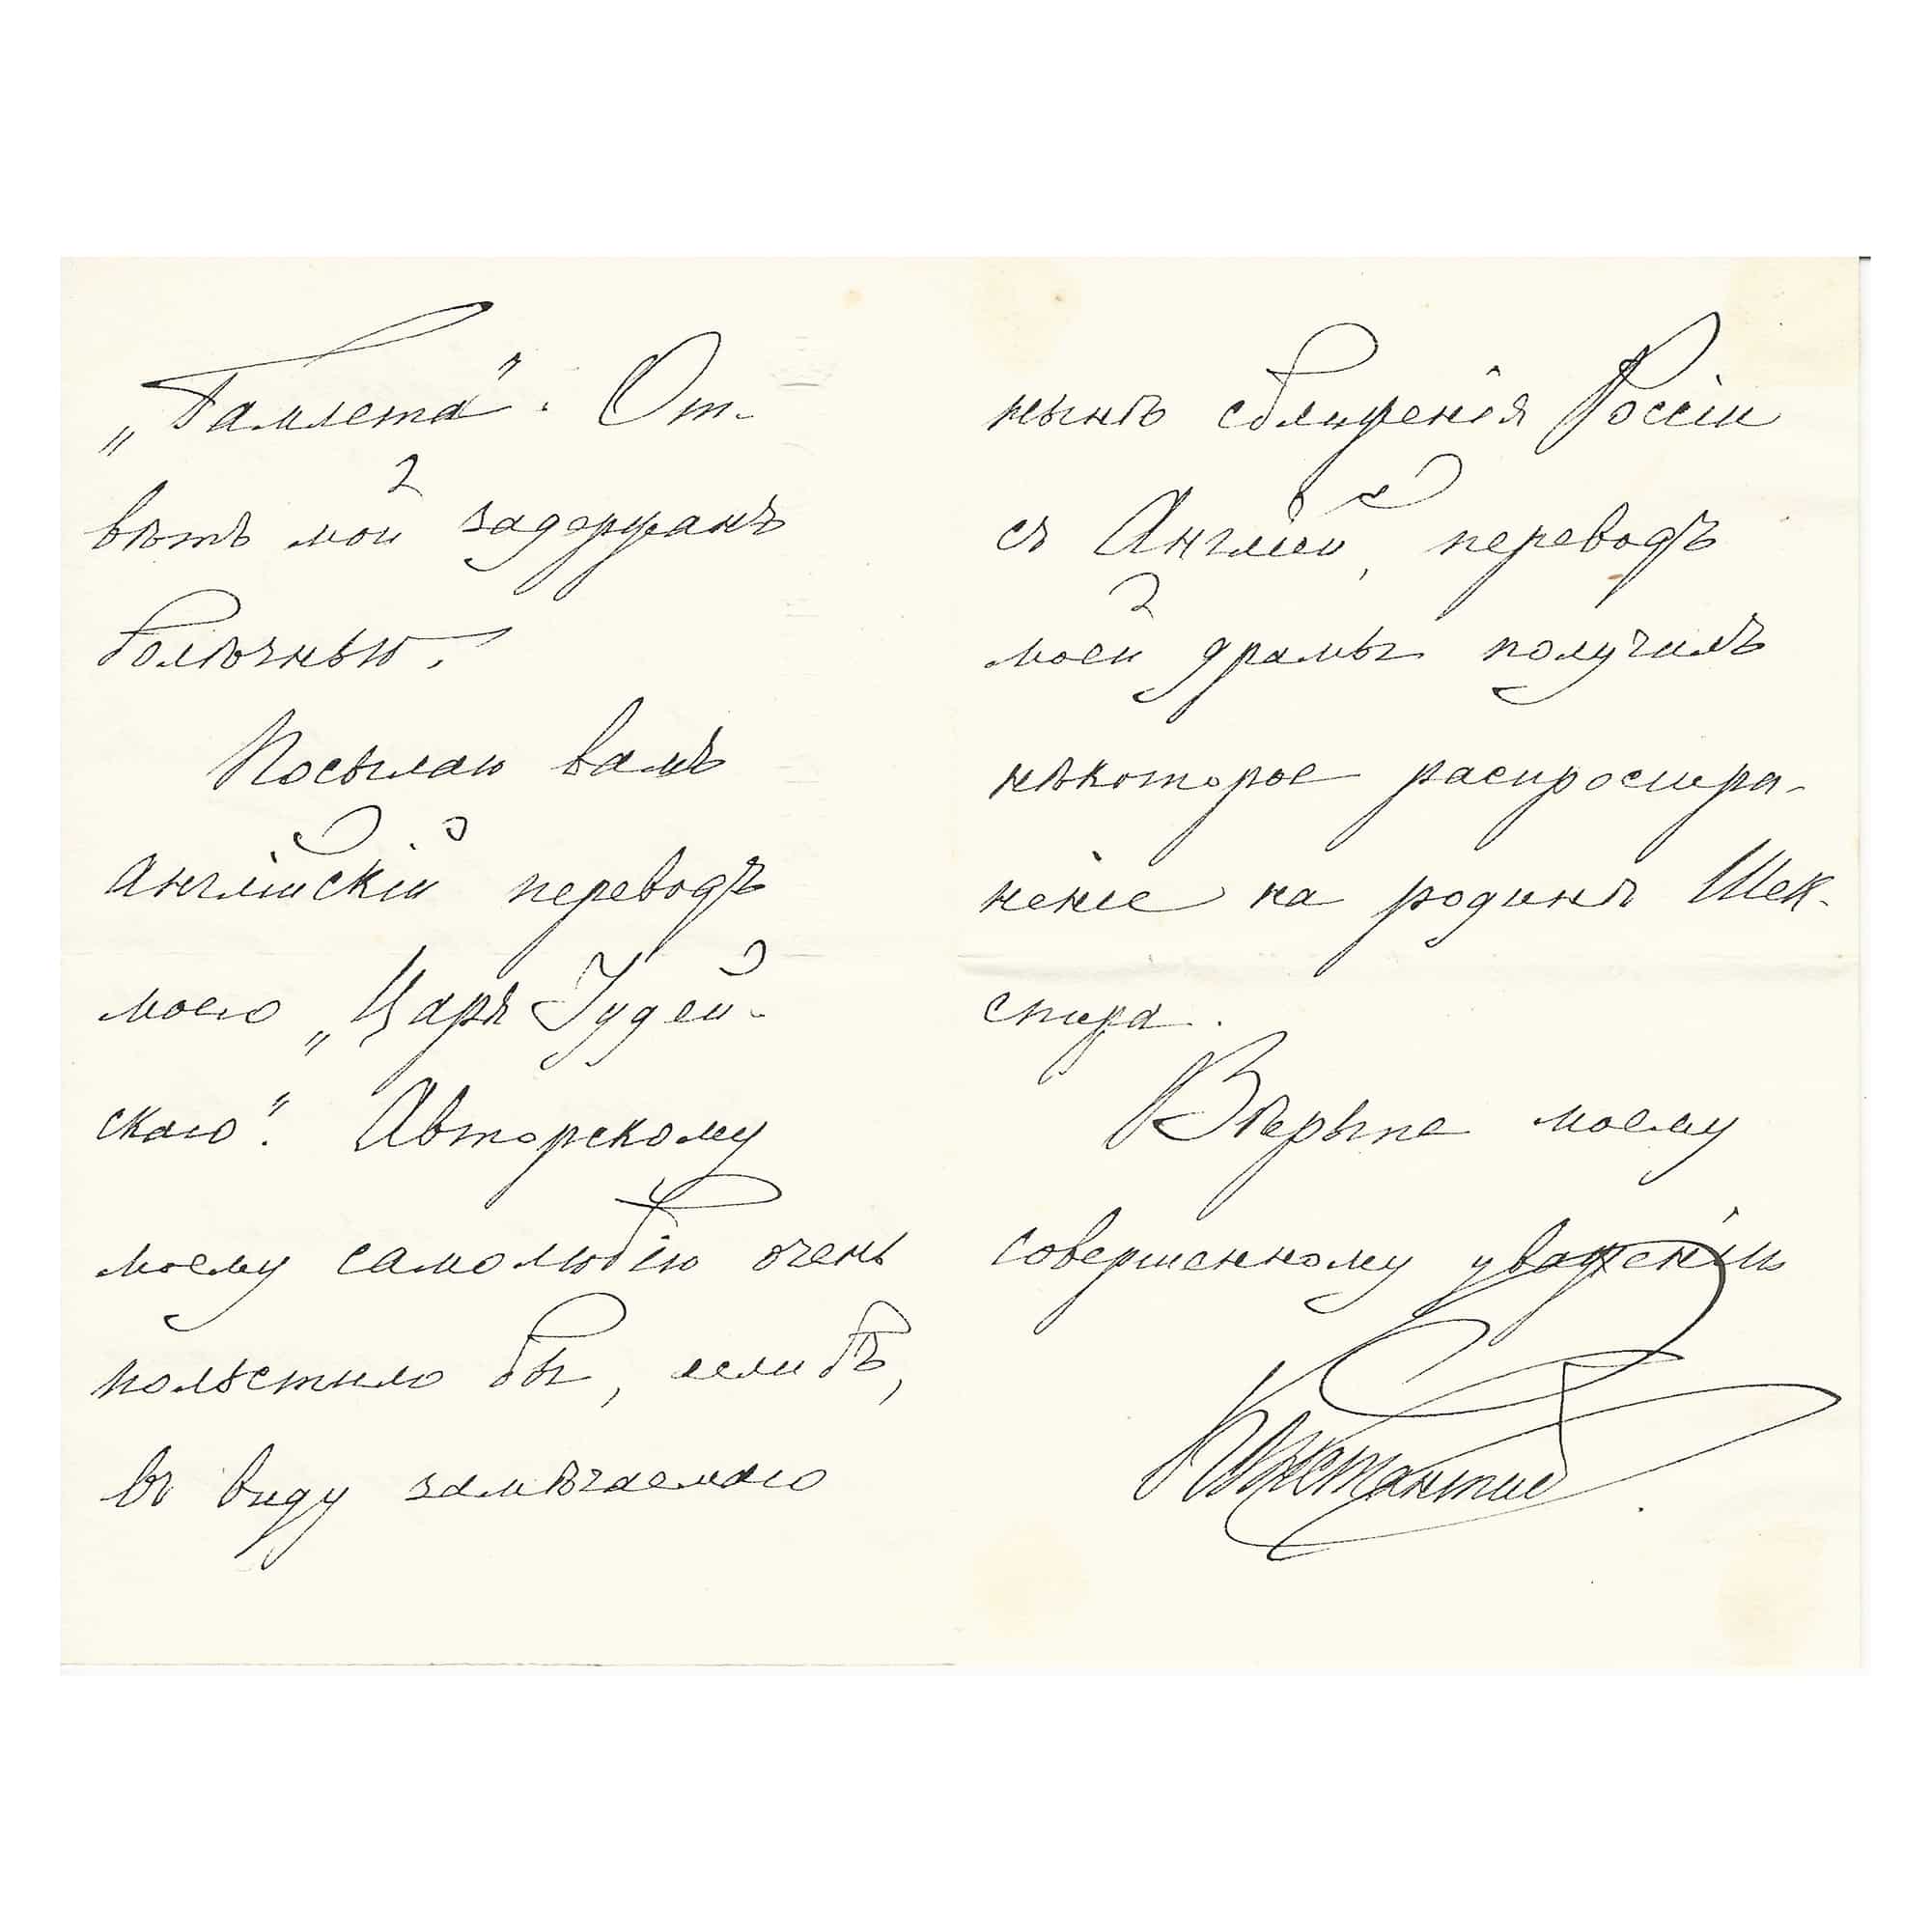 „Гамлета“. От-
вѣтъ мой задержанъ
болѣзнью.
Посылаю вамъ
Англійскій переводъ
моего „Царя Іудей-
скаго“. Авторскому
моему самолюбію очень
польстило бы, если бъ,
въ виду замѣчаемаго
нынѣ сближенія Россіи
съ Англіей, переводъ
моей драмы получилъ
нѣкоторое распростра-
неніе на родинѣ Шек-
спира.
Вѣрьте моему
совершенному уваженію
Константинъ